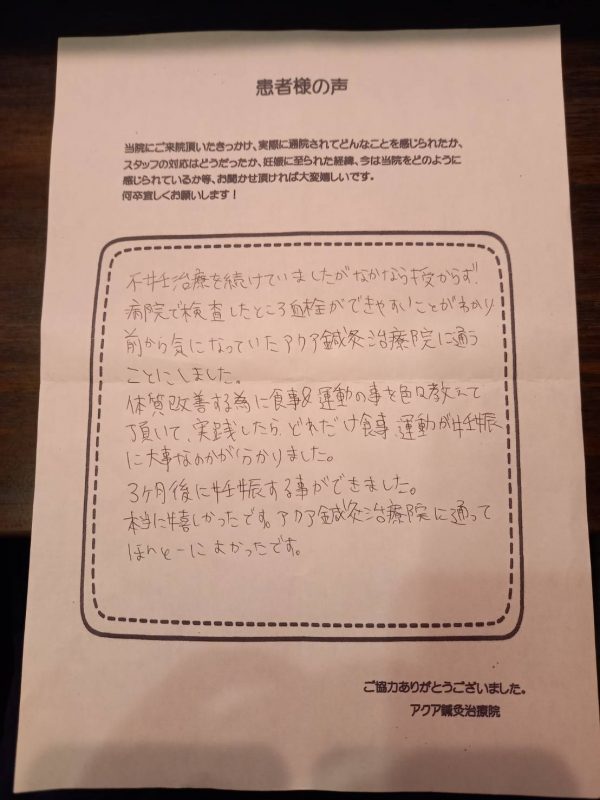 患者様の声
当院にご来院頂いたきっかけ、実際に通院されてどんなことを感じられたか、
スタッフの対応はどうだったか、妊娠に至られた経緯、今は当院をどのように
感じられているか等、お聞かせ頂ければ大変嬉しいです。
何卒宜しくお願いします！
不妊治療を続けていましたがなかなら授からず、
病院で検査したところ血栓ができやすいことがわかり
前から気になっていたアクア鍼灸治療院に通う
ことにしました。
体質改善する為に食事&運動の事を色々教えて
頂いて、実践したら、どれだけ食事、運動が妊娠
に大事なのかが分かりました。
3ヶ月後に妊娠する事ができました。
本当に嬉しかったです。アクア鍼灸治療院に通って
ほんとーによかったです。
ご協力ありがとうございました。
アクア鍼灸治療院